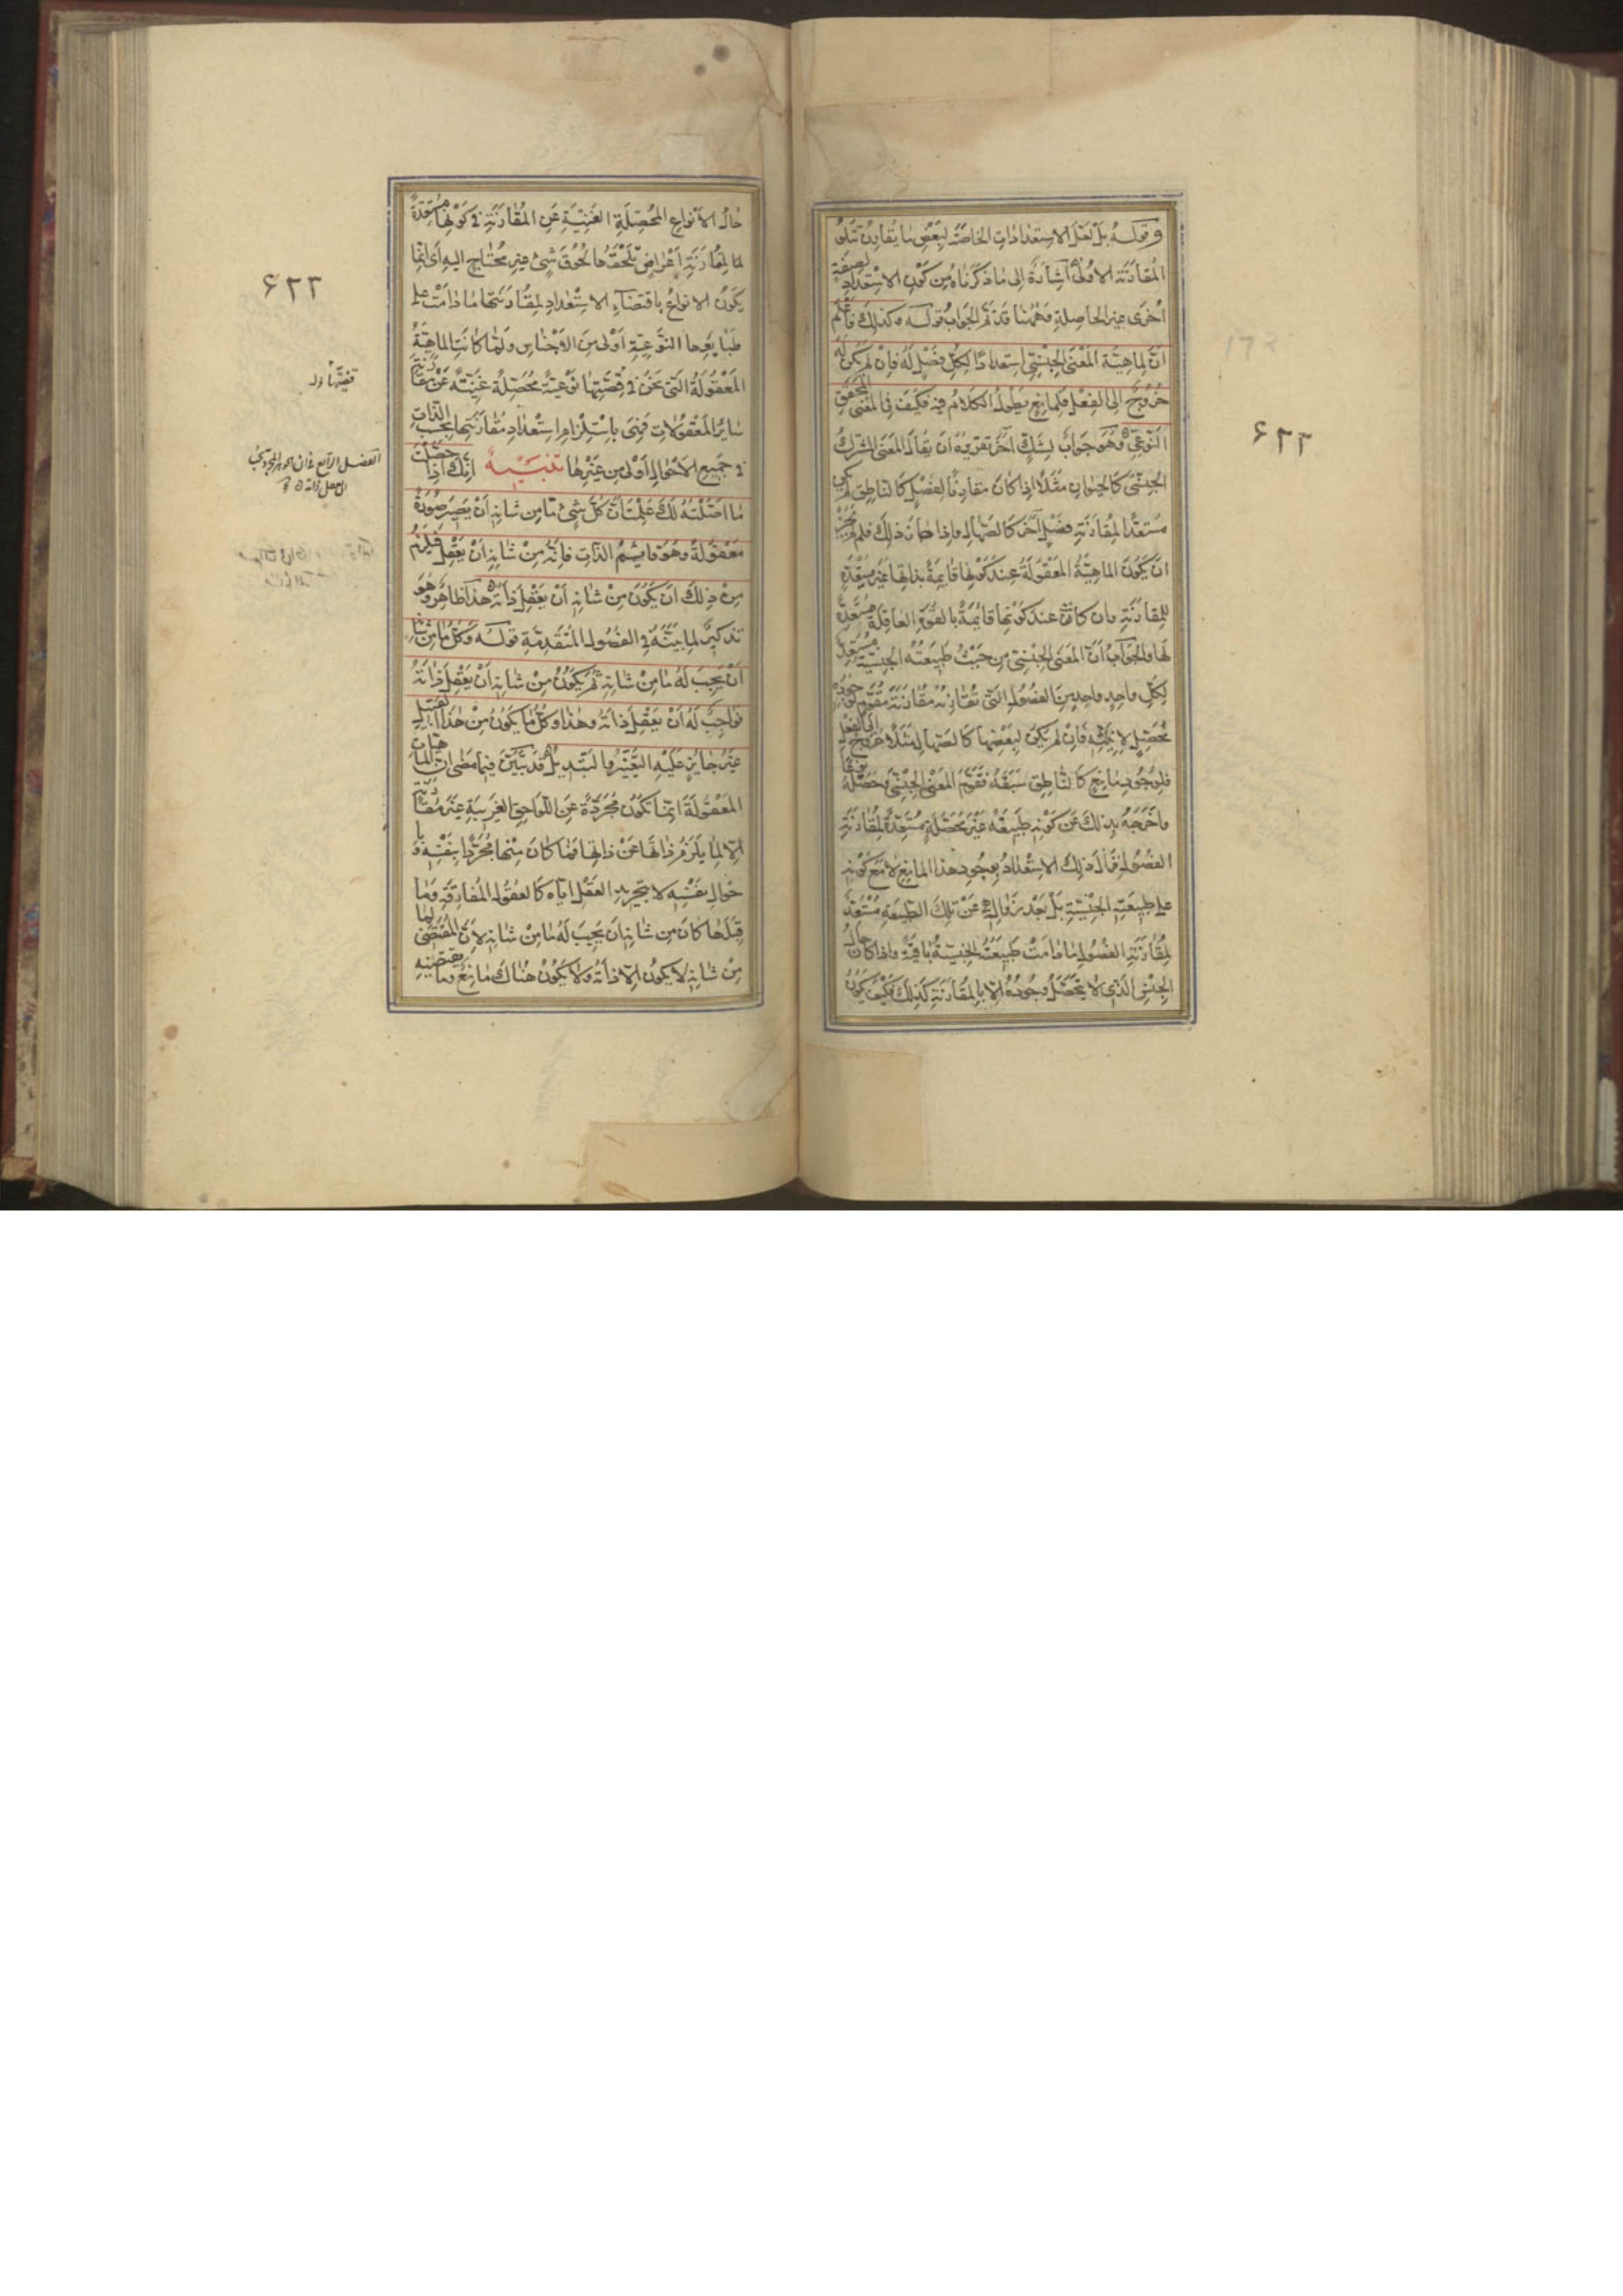 وقوله بل لعل الاستعدادات الخاصة لبعض ما يقارن تتلو
المقارنة الاولى اشارة الى ما ذكرناه من كون الاستعداد لصفة
اخرى غير الحاصلة وههنا قد تم الجواب قوله وكذلك فاعلم
ان لماهية المعنى الجنسي استعدادا لكل فصل له فان لم يكن له
خروج الى الفعل فلمانع يطول الكلام فيه فكيف في المعنى المحقق
النوعي وهو جواب لشك آخر تقريره ان يقال المعنى المشترك
الجنسي كالحيوان مثلا اذا كان مقارنا لفصل كالناطق لم يكن
مستعدا لمقارنة فصل آخر كالصهال واذا جاز ذلك فلم لم يجز
ان يكون الماهية المعقولة عند كونها قائمة بذاتها غير مستعدة
للمقارنة وان كانت عند كونها قائمة بالقوة العاقلة مستعدة
لها والجواب ان المعنى الجنسي من حيث طبيعته الجنسية مستعد
لكل واحد واحد من الفصول التي تقارنه مقارنة مقوم لوجوده
محصل لانيته فان لم يكن لبعضها كالصهال مثلا خروج الى الفعل
فلوجود مانع كالناطق سبقه فقوم المعنى الجنسي وحصله نوعا
واخرجه بذلك عن كونه طبيعة غير محصلة مستعدة لمقارنة
الفصول فزال ذلك الاستعداد بوجود هذا المانع لا مع كونه
على طبيعته الجنسية بل بعد زواله عن تلك الطبيعة مستعد
لمقارنة الفصول ما دامت طبيعته الجنسية باقية واذا كان حال
الجنس الذي لا يتحصل وجوده الا بالمقارنة كذلك فكيف يكون
۶۲۲
حال الانواع المحصلة الغنية عن المقارنة في كونها مستعدة
لمقارنة اعراض تلحقها لحوق شئ غير محتاج اليه اى انما
يكون الانواع باقتضاء الاستعداد لمقارنتها ما دامت على
طبايعها النوعية اولى من الاجناس ولما كانت الماهية
المعقولة التي نحن في قصتها نوعية محصلة غنية عن مقارنة
ساير المعقولات فهى باستلزام استعداد مقارنتها بحسب الذات
في جميع الاحوال اولى من غيرها تنبيه انك اذا حصلت
ما اصلته لك علمت ان كل شئ ما من شانه ان يصير صورة
معقولة وهو قايم الذات فانه من شانه ان يعقل فيلزم
من ذلك ان يكون من شانه ان يعقل ذاته هذا ظاهر وهو
تذكير لما بينه في الفصول المتقدمة قوله وكل ما من شانه
ان يجب له ما من شانه ثم يكون من شانه ان يعقل ذاته
فواجب له ان يعقل ذاته وهذا وكل ما يكون من هذا القبيل
غير جايز عليه التغير والتبديل قد تبين فيما مضى ان الماهيات
المعقولة انما تكون مجردة عن اللواحق الغريبة غير مقارنة
الا لما يلزم ذاتها عن ذاتها فما كان منها مجردا بنفسه و با
حواله بنفسه لا بتجريد العقل اياه كالعقول المفارقة وما
قبلها كان من شانه ان يجب له ما من شانه لان المقتضى لما
من شانه لا يكون الا ذاته ولا يكون هناك مانع وما يقتضيه
۶۲۳
قصتها اول
الفصل الرابع في ان الجوهر المجرد يجب
ان يعقل ذاته